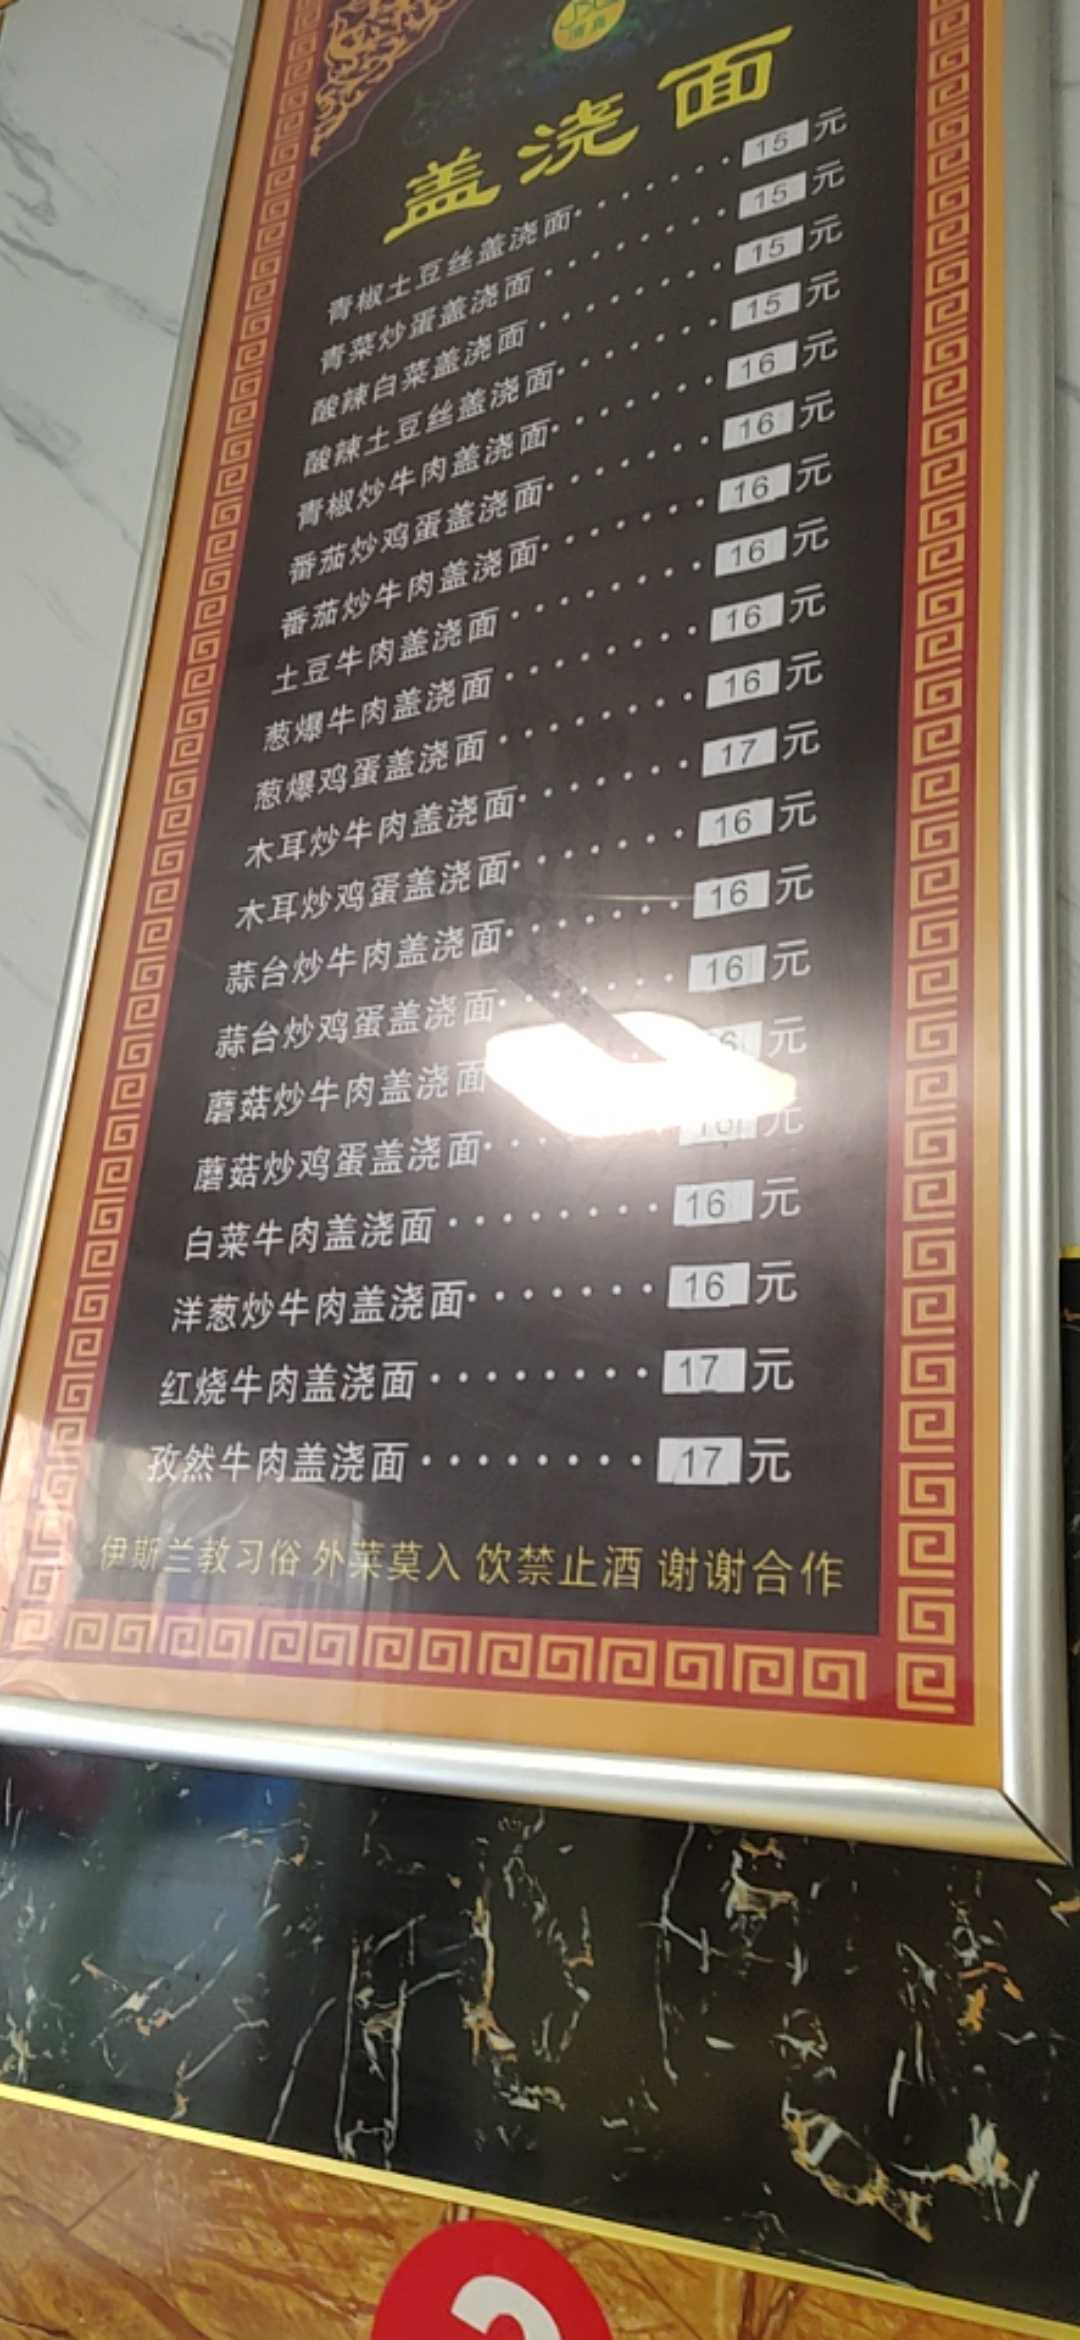 清真
盖浇面
青椒土豆丝盖浇面········15元
青菜炒蛋盖浇面·········15元
酸辣白菜盖浇面·········15元
酸辣土豆丝盖浇面········15元
青椒炒牛肉盖浇面········16元
番茄炒鸡蛋盖浇面········16元
番茄炒牛肉盖浇面········16元
土豆牛肉盖浇面·········16元
葱爆牛肉盖浇面·········16元
葱爆鸡蛋盖浇面·········16元
木耳炒牛肉盖浇面········17元
木耳炒鸡蛋盖浇面········16元
蒜台炒牛肉盖浇面········16元
蒜台炒鸡蛋盖浇面········16元
蘑菇炒牛肉盖浇面 元
蘑菇炒鸡蛋盖浇面··· 16元
白菜牛肉盖浇面·········16元
洋葱炒牛肉盖浇面········16元
红烧牛肉盖浇面·········17元
孜然牛肉盖浇面·········17元
伊斯兰教习俗 外菜莫入 饮禁止酒 谢谢合作